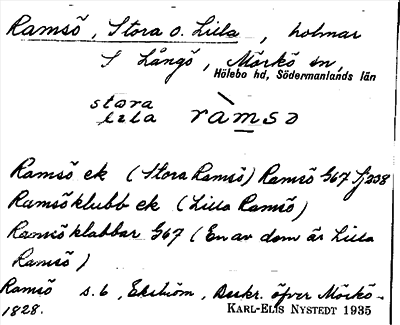 Ramsö, Stora o. Lilla, holmar
S Långö, Mörkö sn,
Hölebo hd, Södermanlands län
stora
lilla ràmsɔ
Ramsö ek (Stora Ramsö) Ramsö G67 Sj238
Ramsöklubb ek (Lilla Ramsö)
Ramsöklabbar G67 (En av dem är Lilla
Ramsö)
Ramsö s.6, Ekström, Beskr. öfver Mörkö-
1828. KARL-ELIS NYSTEDT 1935